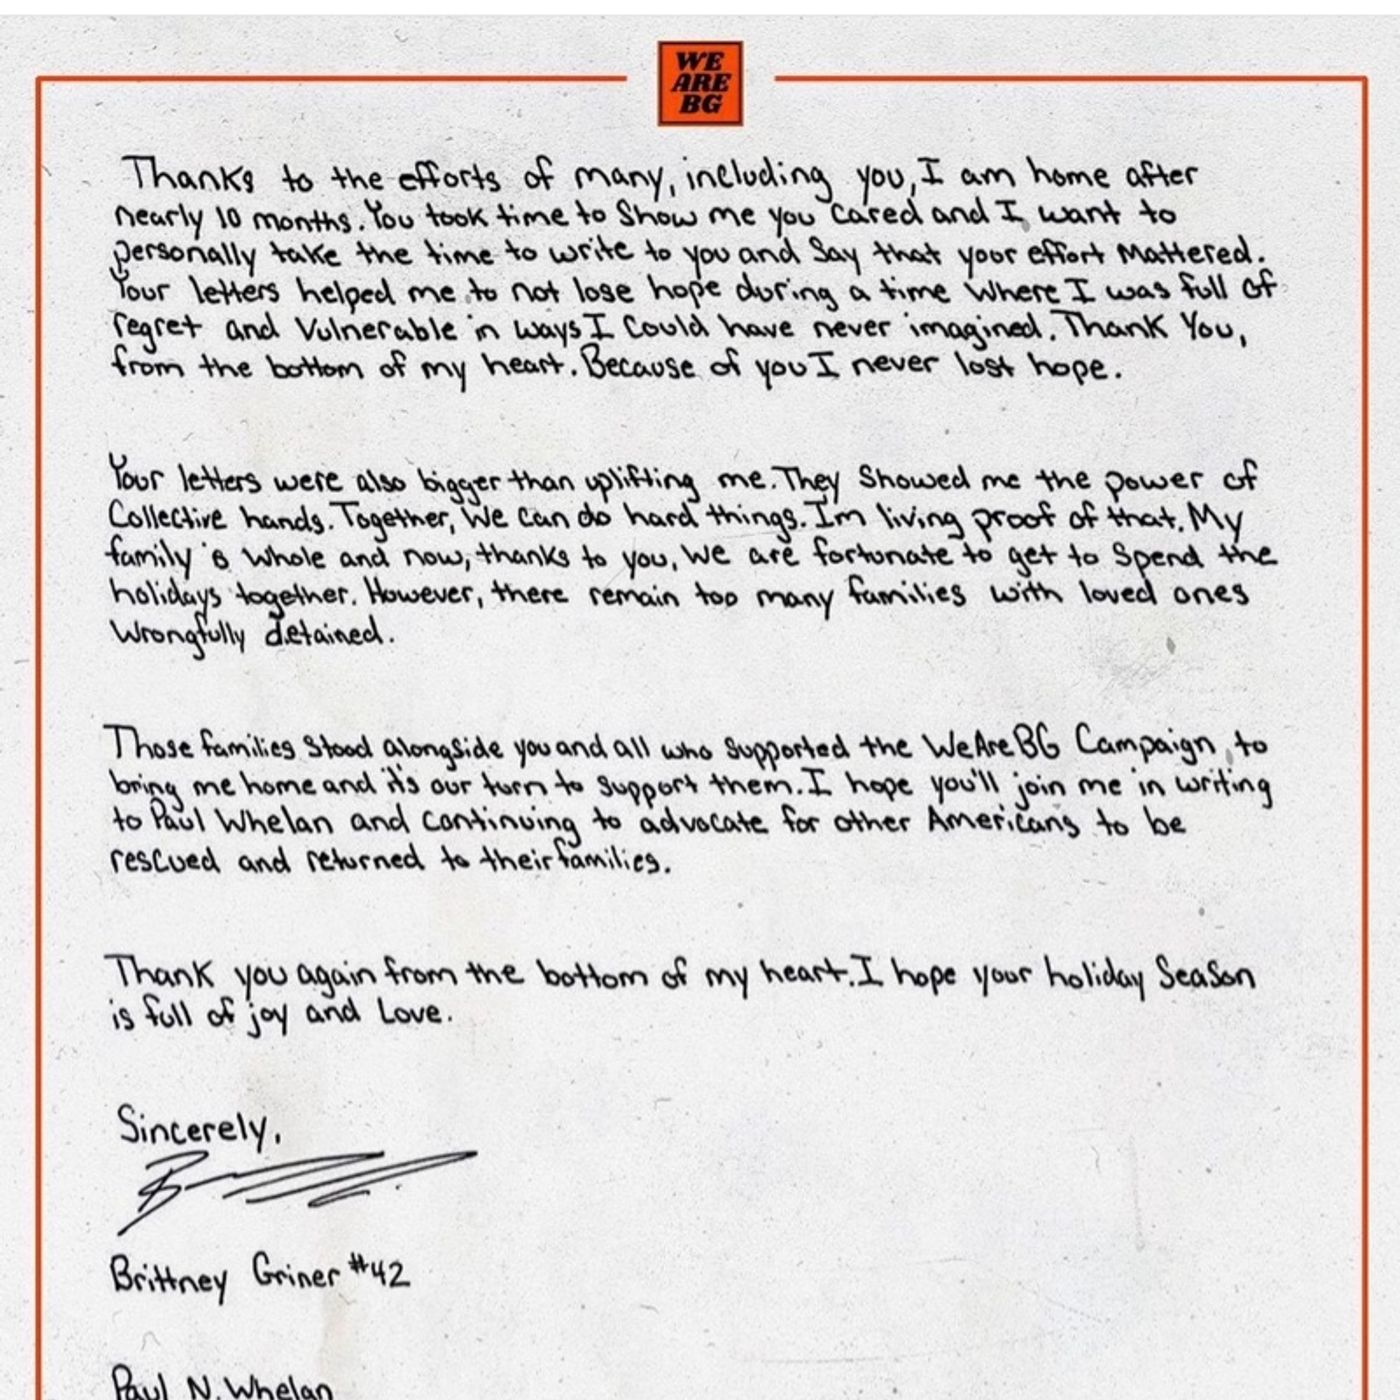 WE
ARE
BG
Thanks to the efforts of many, including you, I am home after
nearly 10 months. You took time to Show me you cared and I want to
personally take the time to write to you and Say that your effort Mattered.
Your letters helped me to not lose hope during a time Where I was full of
regret and Vulnerable in ways I Could have never imagined. Thank You,
from the bottom of my heart. Because of you I never lost hope.
Your letters were also bigger than uplifting me. They Showed me the power of
Collective hands. Together, We Can do hard things. Im living proof of that. My
family is Whole and now, thanks to you, We are fortunate to get to Spend the
holidays together. However, there remain too many families with loved ones
Wrongfully detained.
Those families Stood alongside you and all who Supported the WeAreBG Campaign to
bring me home and it's our turn to Support them. I hope you'll join me in writing
to Paul Whelan and Continuing to advocate for other Americans to be
rescued and returned to their families.
Thank you again from the bottom of my heart. I hope your holiday Season
is full of joy and Love.
Sincerely,
Brittney Griner #42
Paul N. Whelan